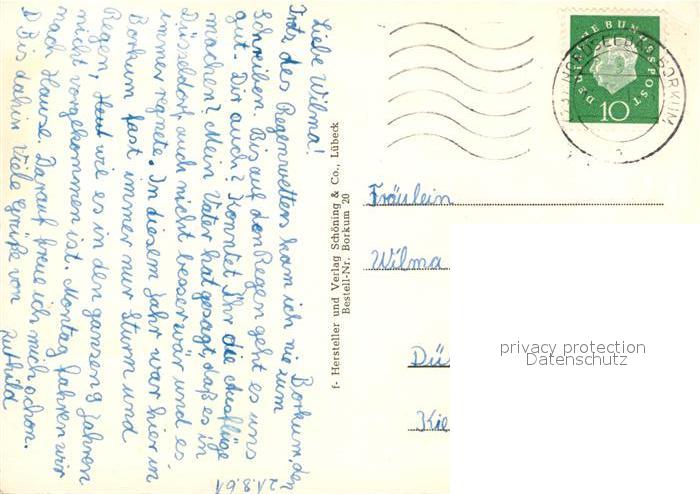 Borkum, den
21.8.61
Liebe Wilma!
Trotz des Regenwetters kam ich nie zum
Schreiben. Bis auf den Regen geht es uns
gut. Dir auch? Konntet Ihr die Ausflüge
machen? Mein Vater hat gesagt, daß es in
Düsseldorf auch nicht besser wär und es
immer regnete. In diesem Jahr war hier in
Borkum fast immer nur Sturm und
Regen, wie es in den ganzen 9 Jahren
nicht vorgekommen ist. Montag fahren wir
nach Hause. Darauf freue ich mich schon.
Bis dahin viele Grüße von
Ruthild
f- Hersteller und Verlag Schöning & Co., Lübeck
Bestell-Nr. Borkum 20
DEUTSCHE BUNDESPOST
10
NORDSEEBAD BORKUM
Fräulein
Wilma
Dü
Kie
privacy protection
Datenschutz